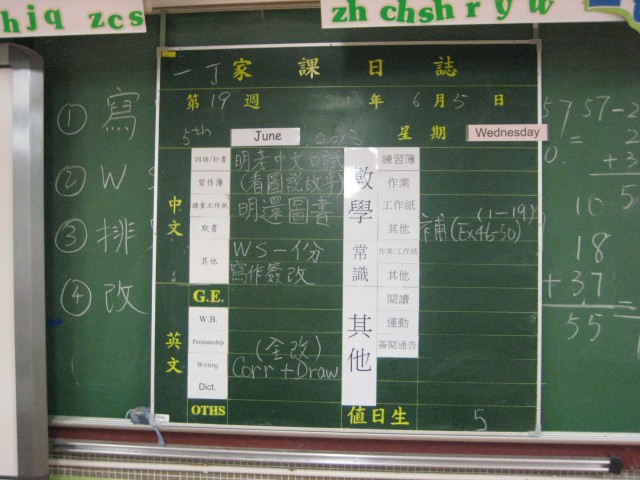 h j q z c s
zh ch sh r y w
一丁家課日誌
第19週 2013年6月5日
5th June 2013 星期 Wednesday
中文
詞語/抄書 明考中文口試
習作簿 (看圖說故事)
課業工作紙 明還圖書
默書
其他 WS一份
寫作簽改
G.E.
英文
W.B.
Penmanship (全改)
Writing Corr + Draw
Dict.
OTHS
數學
練習簿
作業
工作紙 (1-19)
其他 補(Ex46-50)
常識
作業/工作紙
其他
其他
閱讀
運動
簽閱通告
值日生 5
① 寫
② W S
③ 排
④ 改
57 57-2
=
0.
+ 3
5
10
18
+ 37
55 =